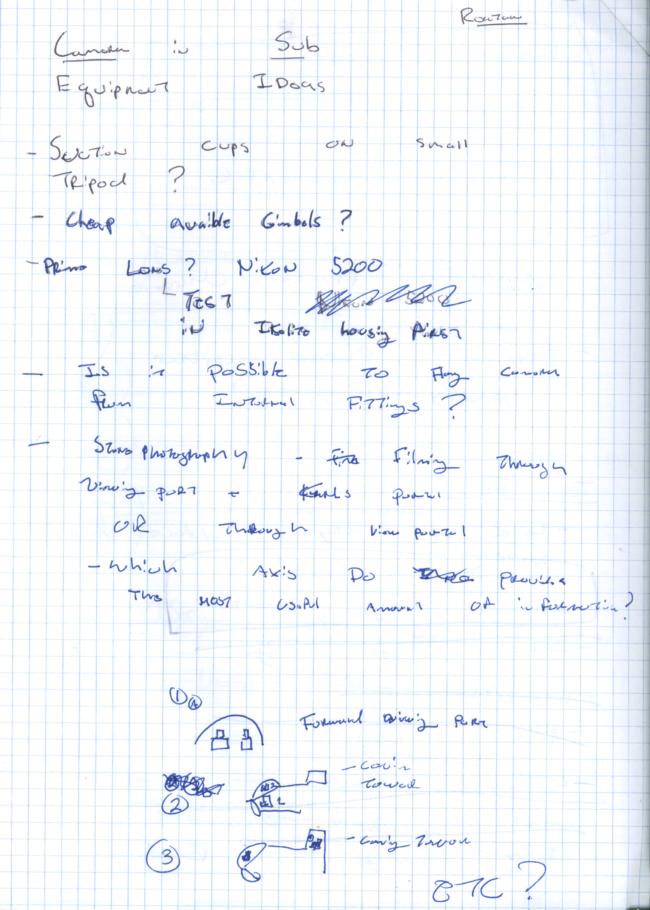 Camera in Sub
Equipment IDeas
- Suction cups on small
Tripod ?
- Cheap avaible Gimbols ?
- Prime Lens ? Nikon 5200
TEST
in Ikelite housing First
- Is it possible To Hang Camera
From Internal Fittings ?
- Stereo photography - Filming Through
Viewing port -
OR Through view portal
- Which Axis Do provide
The most useful Amount of information ?
1
Forward viewing Port
2
1 2
- Conning Tower
3
- Conning Tower
ETC ?